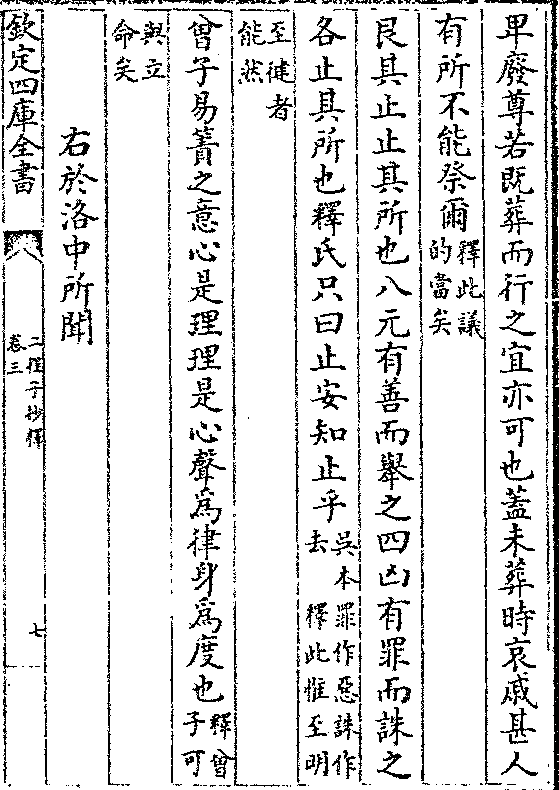 卑廢尊若既葬而行之宜亦可也蓋未葬時哀戚甚人
有所不能祭爾釋此議的當矣
艮其止止其所也八元有善而舉之四凶有罪而誅之
各止其所也釋氏只曰止安知止乎吳本罪作惡誅作去 釋此惟至明
至健者能然
曾子易簀之意心是理理是心聲為律身為度也釋曾子可
與立命矣
右於洛中所聞
欽定四庫全書
二程子抄釋
卷三
七